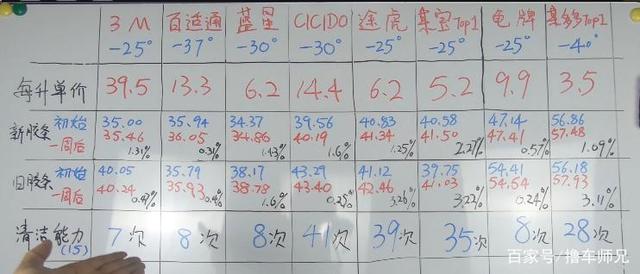 3M 百适通 蓝星 CICIDO 途虎 集宝Top1 龟牌 拼多多Top1
-25° -37° -30° -30° -25° -25° -25° -40°
每升单价 39.5 13.3 6.2 14.4 6.2 5.2 9.9 3.5
新胶条 初始 35.00 35.94 34.37 39.56 40.83 40.58 47.14 56.86
一周后 35.46 36.05 34.86 40.19 41.34 41.50 47.41 57.48
1.31% 0.31% 1.43% 1.6% 1.25% 2.27% 0.57% 1.09%
旧胶条 初始 40.05 35.79 38.17 43.29 41.12 39.75 54.41 56.18
一周后 40.24 35.93 38.78 43.40 42.46 41.03 54.54 57.93
0.47% 0.4% 1.6% 0.25% 3.26% 3.22% 0.24% 3.11%
清洁能力 7次 8次 8次 41次 39次 35次 8次 28次
(15)
百家号/撸车师兄